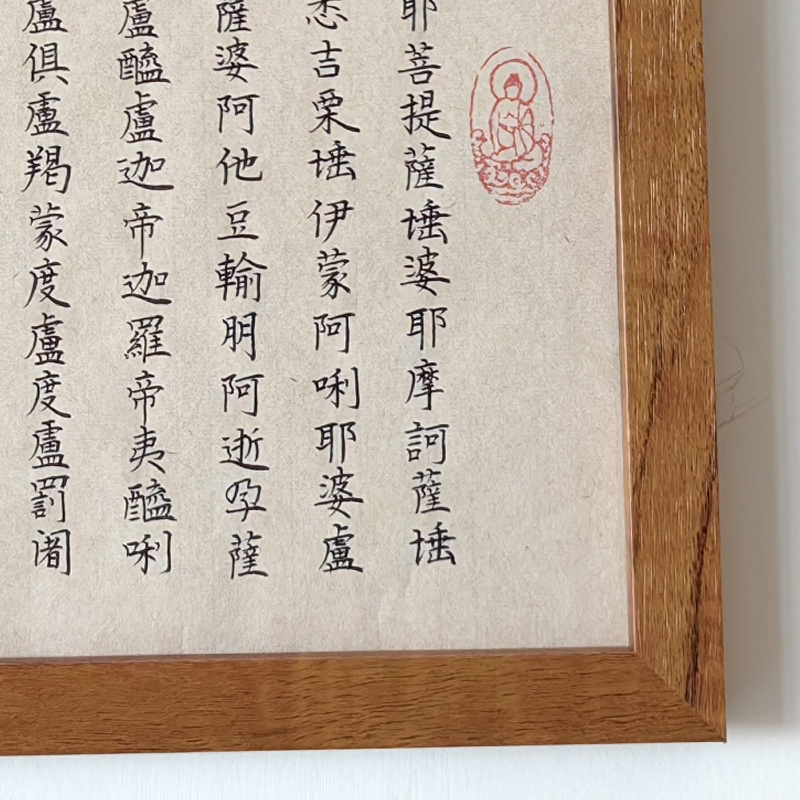 耶菩提薩埵婆耶摩訶薩埵
悉吉栗埵伊蒙阿唎耶婆盧
薩婆阿他豆輸朋阿逝孕薩
盧醯盧迦帝迦羅帝夷醯唎
盧俱盧羯蒙度盧度盧罰阇